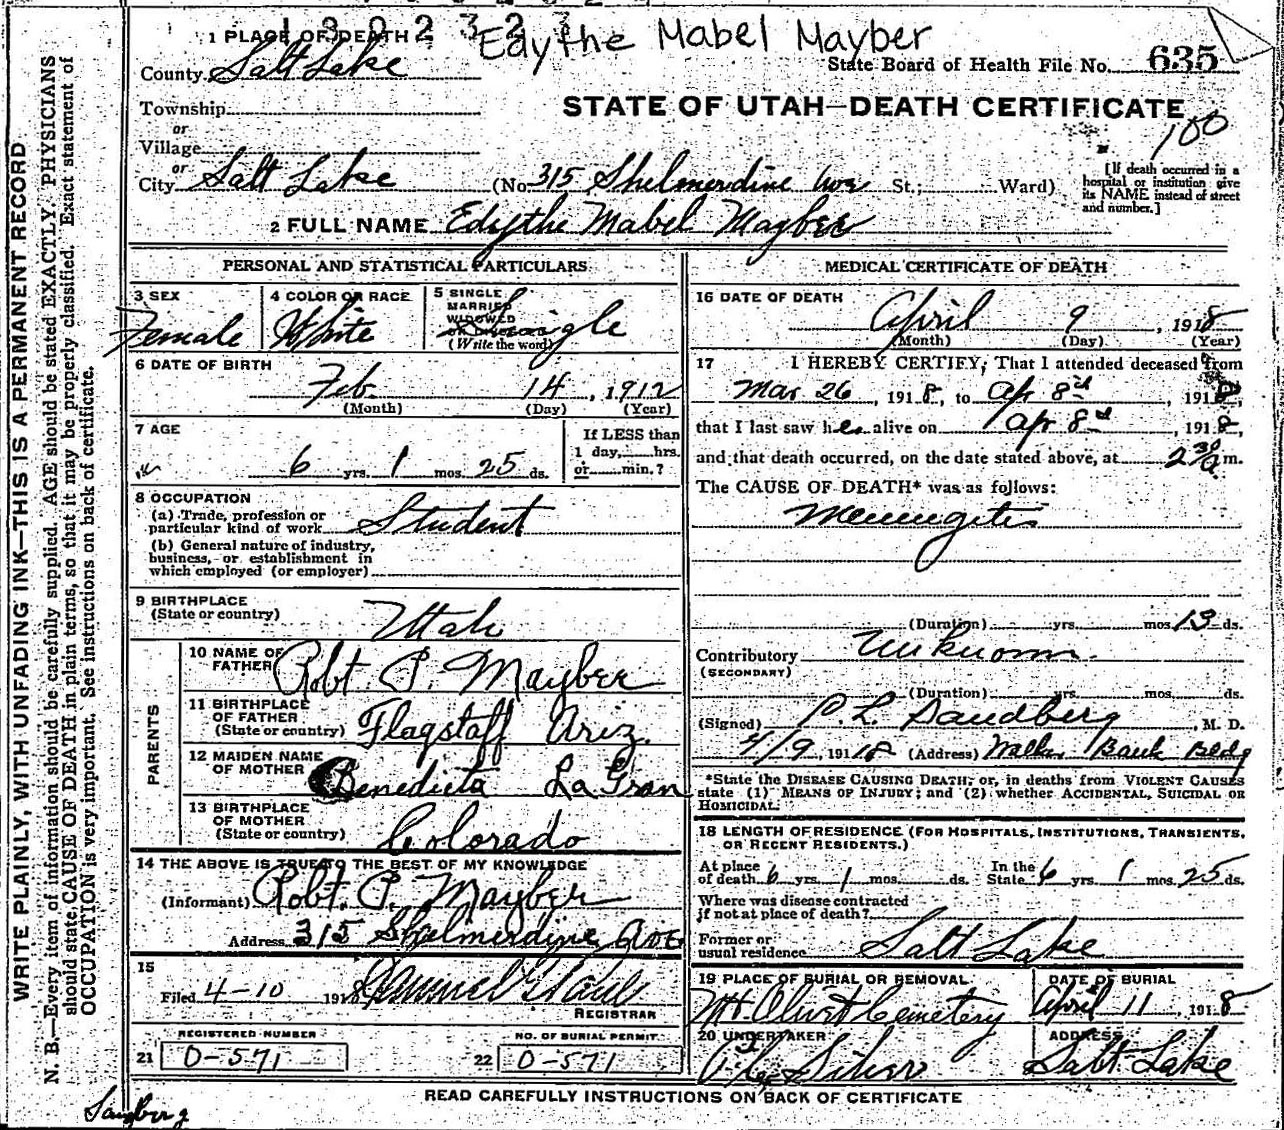 1302323
1 PLACE OF DEATH 2
Edythe Mabel Mayber
County Salt Lake
State Board of Health File No. 635
Township
STATE OF UTAH—DEATH CERTIFICATE
or
Village
100
or
City Salt Lake (No. 315 Shelmerdine Ave St.; Ward)
[If death occurred in a hospital or institution give its NAME instead of street and number.]
2 FULL NAME Edythe Mabel Mayber
PERSONAL AND STATISTICAL PARTICULARS
3 SEX
Female
4 COLOR OR RACE
White
5 SINGLE
MARRIED
WIDOWED
OR DIVORCED
(Write the word)
Single
6 DATE OF BIRTH
Feb. 14, 1912
(Month) (Day) (Year)
7 AGE
6 yrs. 1 mos. 25 ds.
If LESS than
1 day, hrs.
or min.?
8 OCCUPATION
(a) Trade, profession or
particular kind of work Student
(b) General nature of industry,
business, or establishment in
which employed (or employer)
9 BIRTHPLACE
(State or country)
Utah
PARENTS
10 NAME OF
FATHER Robt. P. Mayber
11 BIRTHPLACE
OF FATHER
(State or country) Flagstaff Ariz.
12 MAIDEN NAME
OF MOTHER Benedicta La Gran
13 BIRTHPLACE
OF MOTHER
(State or country) Colorado
14 THE ABOVE IS TRUE TO THE BEST OF MY KNOWLEDGE
(Informant) Robt. P. Mayber
Address 315 Shelmerdine Ave
15
Filed 4-10 1918
REGISTRAR
REGISTERED NUMBER
21 O-571
NO. OF BURIAL PERMIT
22 O-571
MEDICAL CERTIFICATE OF DEATH
16 DATE OF DEATH
April 9, 1918
(Month) (Day) (Year)
17 I HEREBY CERTIFY, That I attended deceased from
Mar 26, 1918, to Apr 8th, 1918,
that I last saw her alive on Apr 8th, 1918,
and that death occurred, on the date stated above, at 2 30 a m.
The CAUSE OF DEATH* was as follows:
Meningitis
(Duration) yrs. mos. 13 ds.
Contributory Unknown.
(SECONDARY)
(Duration) yrs. mos. ds.
(Signed) P. L. Sandberg, M. D.
4/9, 1918 (Address) Walker Bank Bldg
*State the DISEASE CAUSING DEATH; or, in deaths from VIOLENT CAUSES
state (1) MEANS OF INJURY; and (2) whether ACCIDENTAL, SUICIDAL OR
HOMICIDAL.
18 LENGTH OF RESIDENCE (FOR HOSPITALS, INSTITUTIONS, TRANSIENTS,
OR RECENT RESIDENTS.)
At place
of death 6 yrs. 1 mos. ds.
In the
State 6 yrs. 1 mos. 25 ds.
Where was disease contracted
if not at place of death?
Former or
usual residence Salt Lake
19 PLACE OF BURIAL OR REMOVAL
Mt. Olivet Cemetery
DATE OF BURIAL
April 11, 1918
20 UNDERTAKER
ADDRESS
Salt Lake
READ CAREFULLY INSTRUCTIONS ON BACK OF CERTIFICATE
WRITE PLAINLY, WITH UNFADING INK—THIS IS A PERMANENT RECORD
N. B.—Every item of information should be carefully supplied. AGE should be stated EXACTLY. PHYSICIANS
should state CAUSE OF DEATH in plain terms, so that it may be properly classified. Exact statement of
OCCUPATION is very important. See instructions on back of certificate.
Sandberg